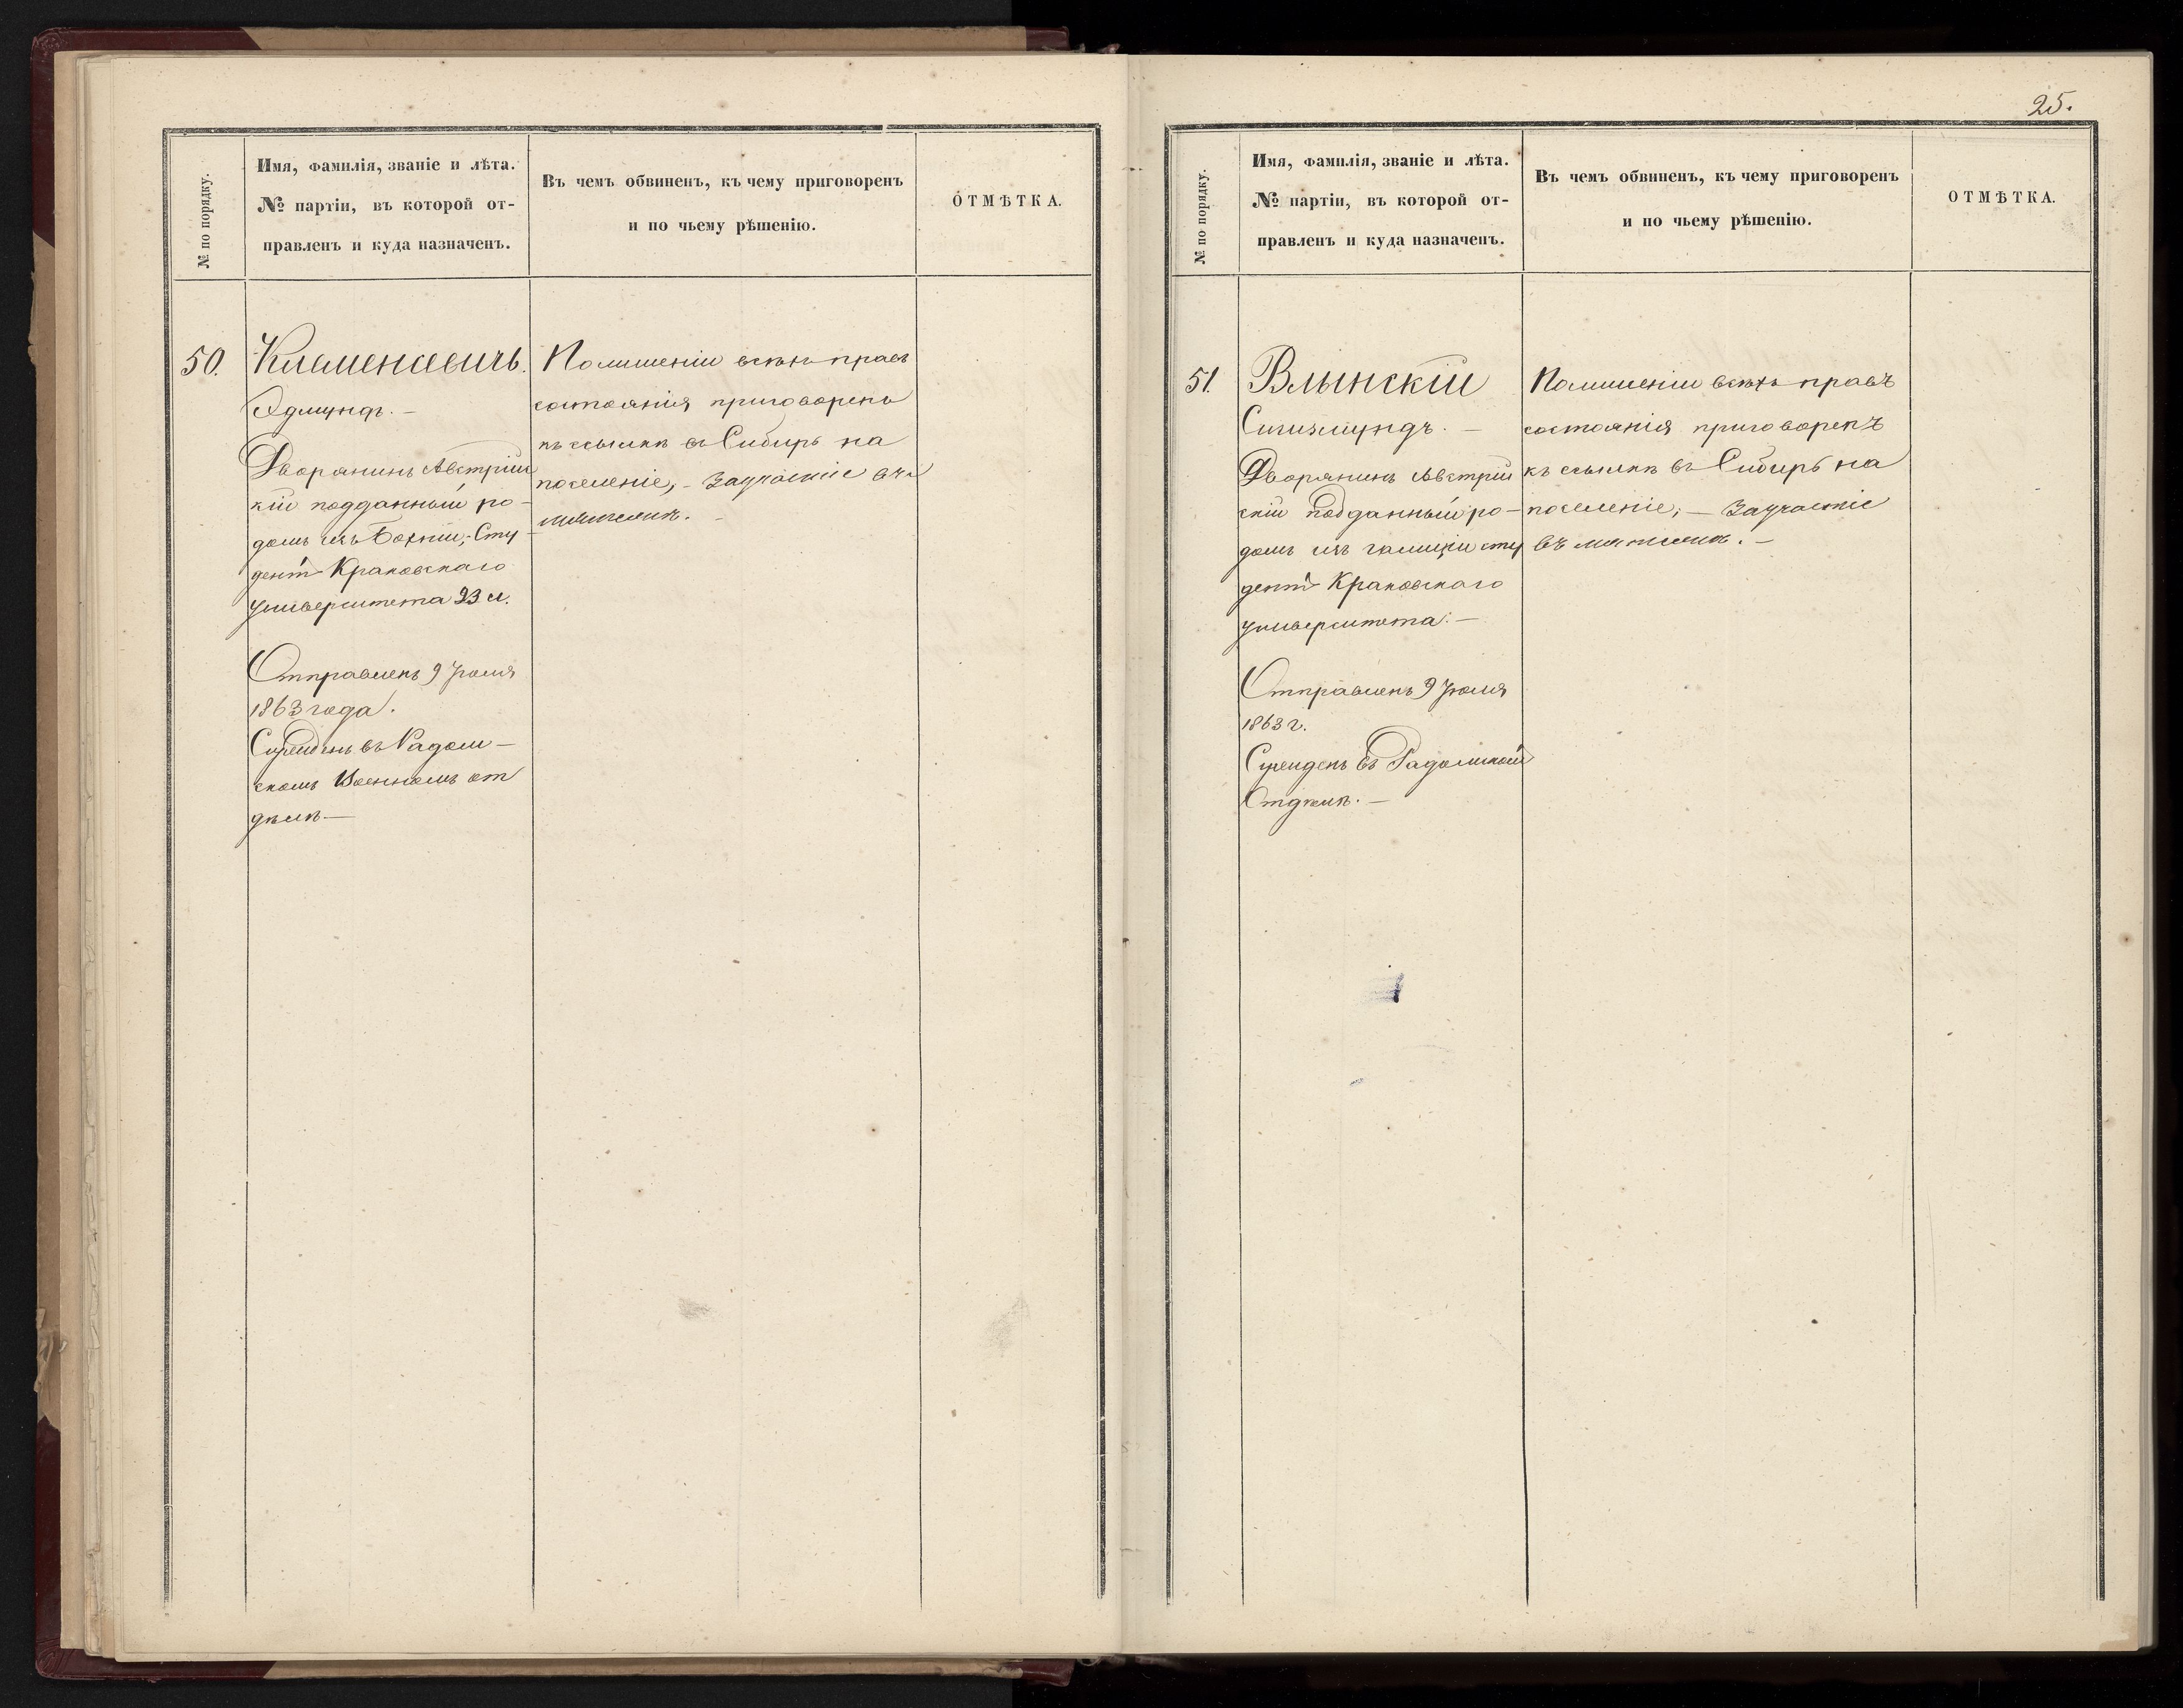 № по порядку.
Имя, фамилія, званіе и лѣта.
№ партіи, въ которой от-
правленъ и куда назначенъ.
Въ чемъ обвиненъ, къ чему приговоренъ
и по чьему рѣшенію.
ОТМѢТКА.
50.
Клеменсевичъ.
Эдмундъ. —
Дворянинъ Австрій
кій подданный ро-
домъ изъ Бохніи,- Сту
дентъ Краковскаго
университета 23 л.
Отправленъ 9 Іюля
1863 года.
Сужденъ въ Радом—
скомъ Военномъ от
дѣлѣ—
Полишеніи всѣхъ правъ
состоянія приговоренъ
къ ссылкѣ въ Сибирь на
поселеніе,- Заучастіе въ
мятежѣ. —
25.
№ по порядку.
Имя, фамилія, званіе и лѣта.
№ партіи, въ которой от-
правленъ и куда назначенъ.
Въ чемъ обвиненъ, къ чему приговоренъ
и по чьему рѣшенію.
ОТМѢТКА.
51.
Влынскій
Сигизмундъ. —
Дворянинъ Австрій
скій подданный ро-
домъ изъ галиціи сту
дентъ Краковскаго
университета. —
Отправленъ 9 Іюля
1863 г.
Сужденъ въ Радомскомъ
Отдѣлѣ. —
Полишеніи всѣхъ правъ
состоянія приговоренъ
къ ссылкѣ въ Сибирь на
поселеніе; — Заучастіе
въ мятежѣ. —